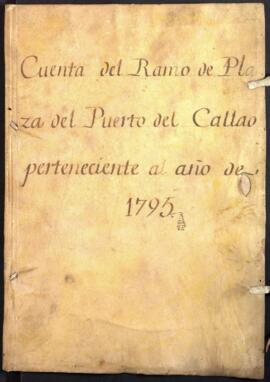 Cuenta del Ramo de Pla
za del Puerto del Callao
perteneciente al año de
1795